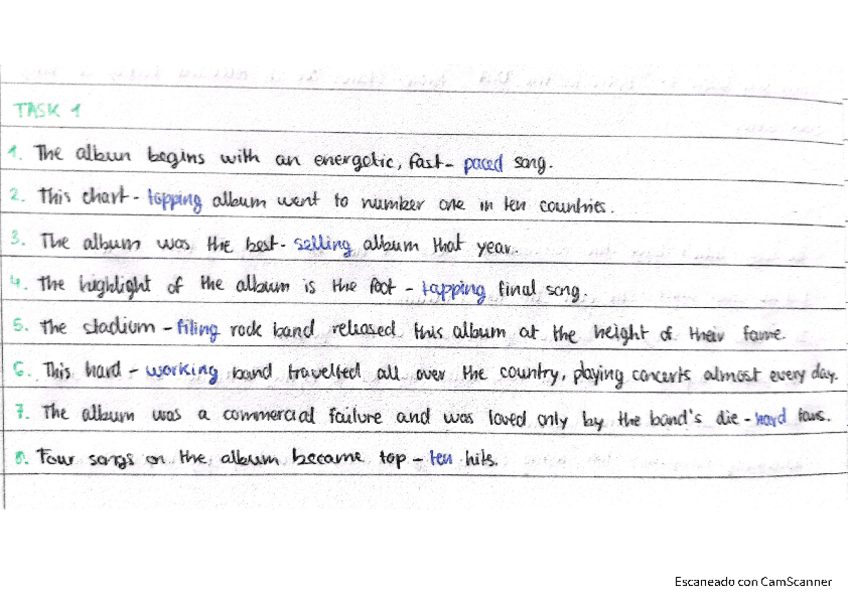 TASK 1
1. The album begins with an energetic, fast-paced song.
2. This chart-topping album went to number one in ten countries.
3. The album was the best-selling album that year.
4. The highlight of the album is the foot-tapping final song.
5. The stadium-filing rock band released this album at the height of their fame.
6. This hard-working band travelled all over the country, playing concerts almost every day.
7. The album was a commercial failure and was loved only by the band's die-hard fans.
8. Four songs on the album became top-ten hits.
Escaneado con CamScanner